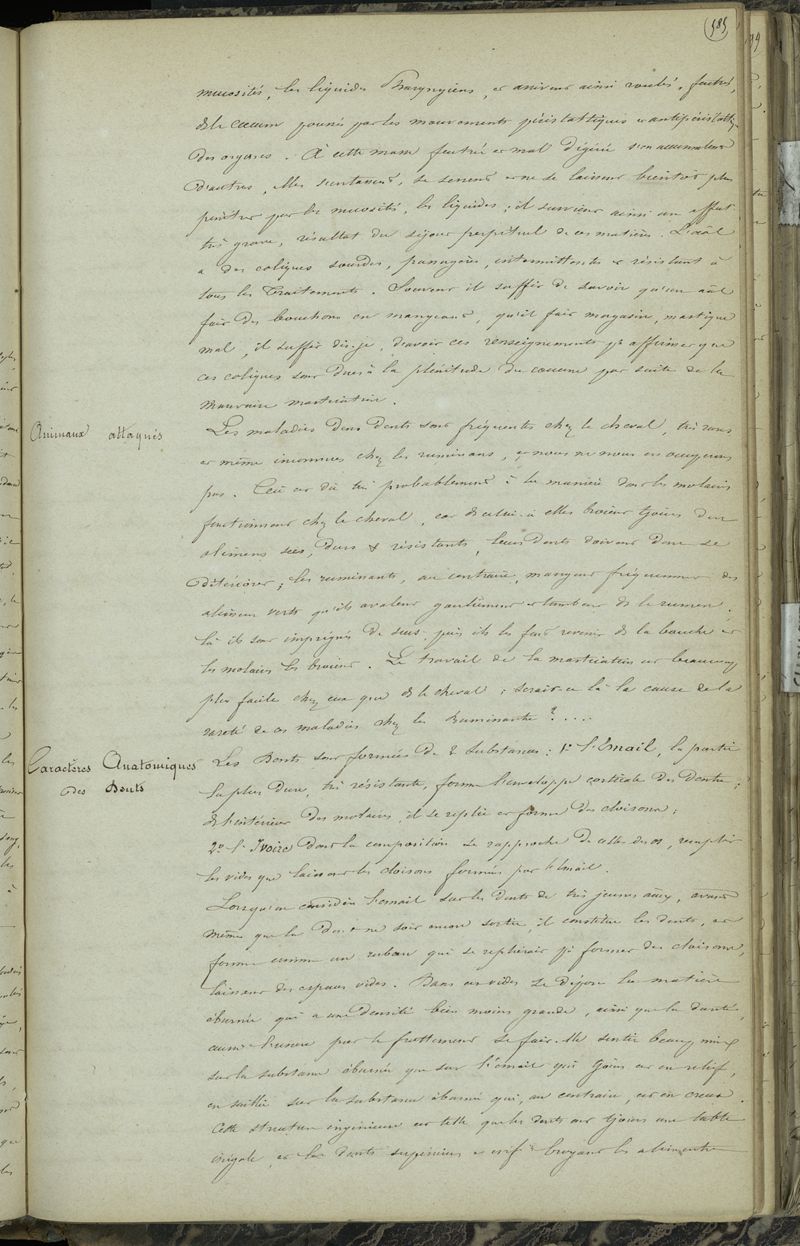 585
mucosités, les liquides Pharyngiens, et arrivent ainsi roulés, feutrés,
ds le Cœcum poussés par les mouvements péristaltiques et antipéristaltiq
des organes. À cette masse feutrée et mal digérée s'en accumulent
d'autres, elles s'entassent, se serrent et ne se laissent bientôt plus
pénétrer par les mucosités, les liquides; il survient ainsi un effet
très grave, résultat du séjour perpétuel de ces matières. L'aal
a des coliques sourdes, passagères, intermittentes & résistant à
tous les Traitements. Souvent il suffit de savoir qu'un aal
fait des bouchons en mangeant, qu'il fait magasin, mastique
mal, il suffit dis-je, d'avoir ces renseignements pr affirmer que
ces coliques sont dues à la plénitude du cœcum par suite de la
mauvaise mastication.
Animaux attaqués
Les maladies des Dents sont fréquentes chez le cheval, très rares
et même inconnues chez les ruminans, et nous ne nous en occuperons
pas. Ceci est dû très probablement à la manière dont les molaires
fonctionnent chez le cheval, car ds celui-ci elles broient tjours des
alimens secs, durs & résistants, leurs Dents doivent donc se
détériorer; les ruminants, au contraire, mangent fréquemment des
aliments verts qu'ils avalent goulûment et tombent ds le rumen,
là ils sont imprégnés de sucs puis ils les font revenir ds la bouche et
les molaires les broient. Le travail de la mastication est beaucoup
plus facile chez eux que ds le cheval; serait-ce là la cause de la
rareté de ces maladies chez les Ruminants?....
Caractères Anatomiques
des Dents
Les Dents sont formées de 2 substances: 1º l'Email, la partie
la plus dure, très résistante, forme l'enveloppe corticale des Dents;
ds l'intérieur des molaires, il se replie et forme des cloisons;
2º l'Ivoire dont la composition se rapproche de celle des os, remplit
les vides que laissent les cloisons formées par l'émail.
Lorsqu'on considère l'émail sur les Dents de très jeunes aaux, avant
même que la Dent ne soit encore sortie, il constitue les dents, et
forme comme un ruban qui se replierait pr former des cloisons,
laissant des espaces vides. Dans ces vides se dépose la matière
éburnée qui a une densité bien moins grande, ainsi que la dureté,
aussi l'usure par le frottement se fait-elle sentir beaucp mieux
sur la substance éburnée que sur l'émail qui tjours est en relief,
en saillie sur la substance éburnée qui, au contraire, est en creux.
Cette structure ingénieuse est telle que les dents ont tjours une table
inégale, et les Dents supérieures & inf. broyant les aliments